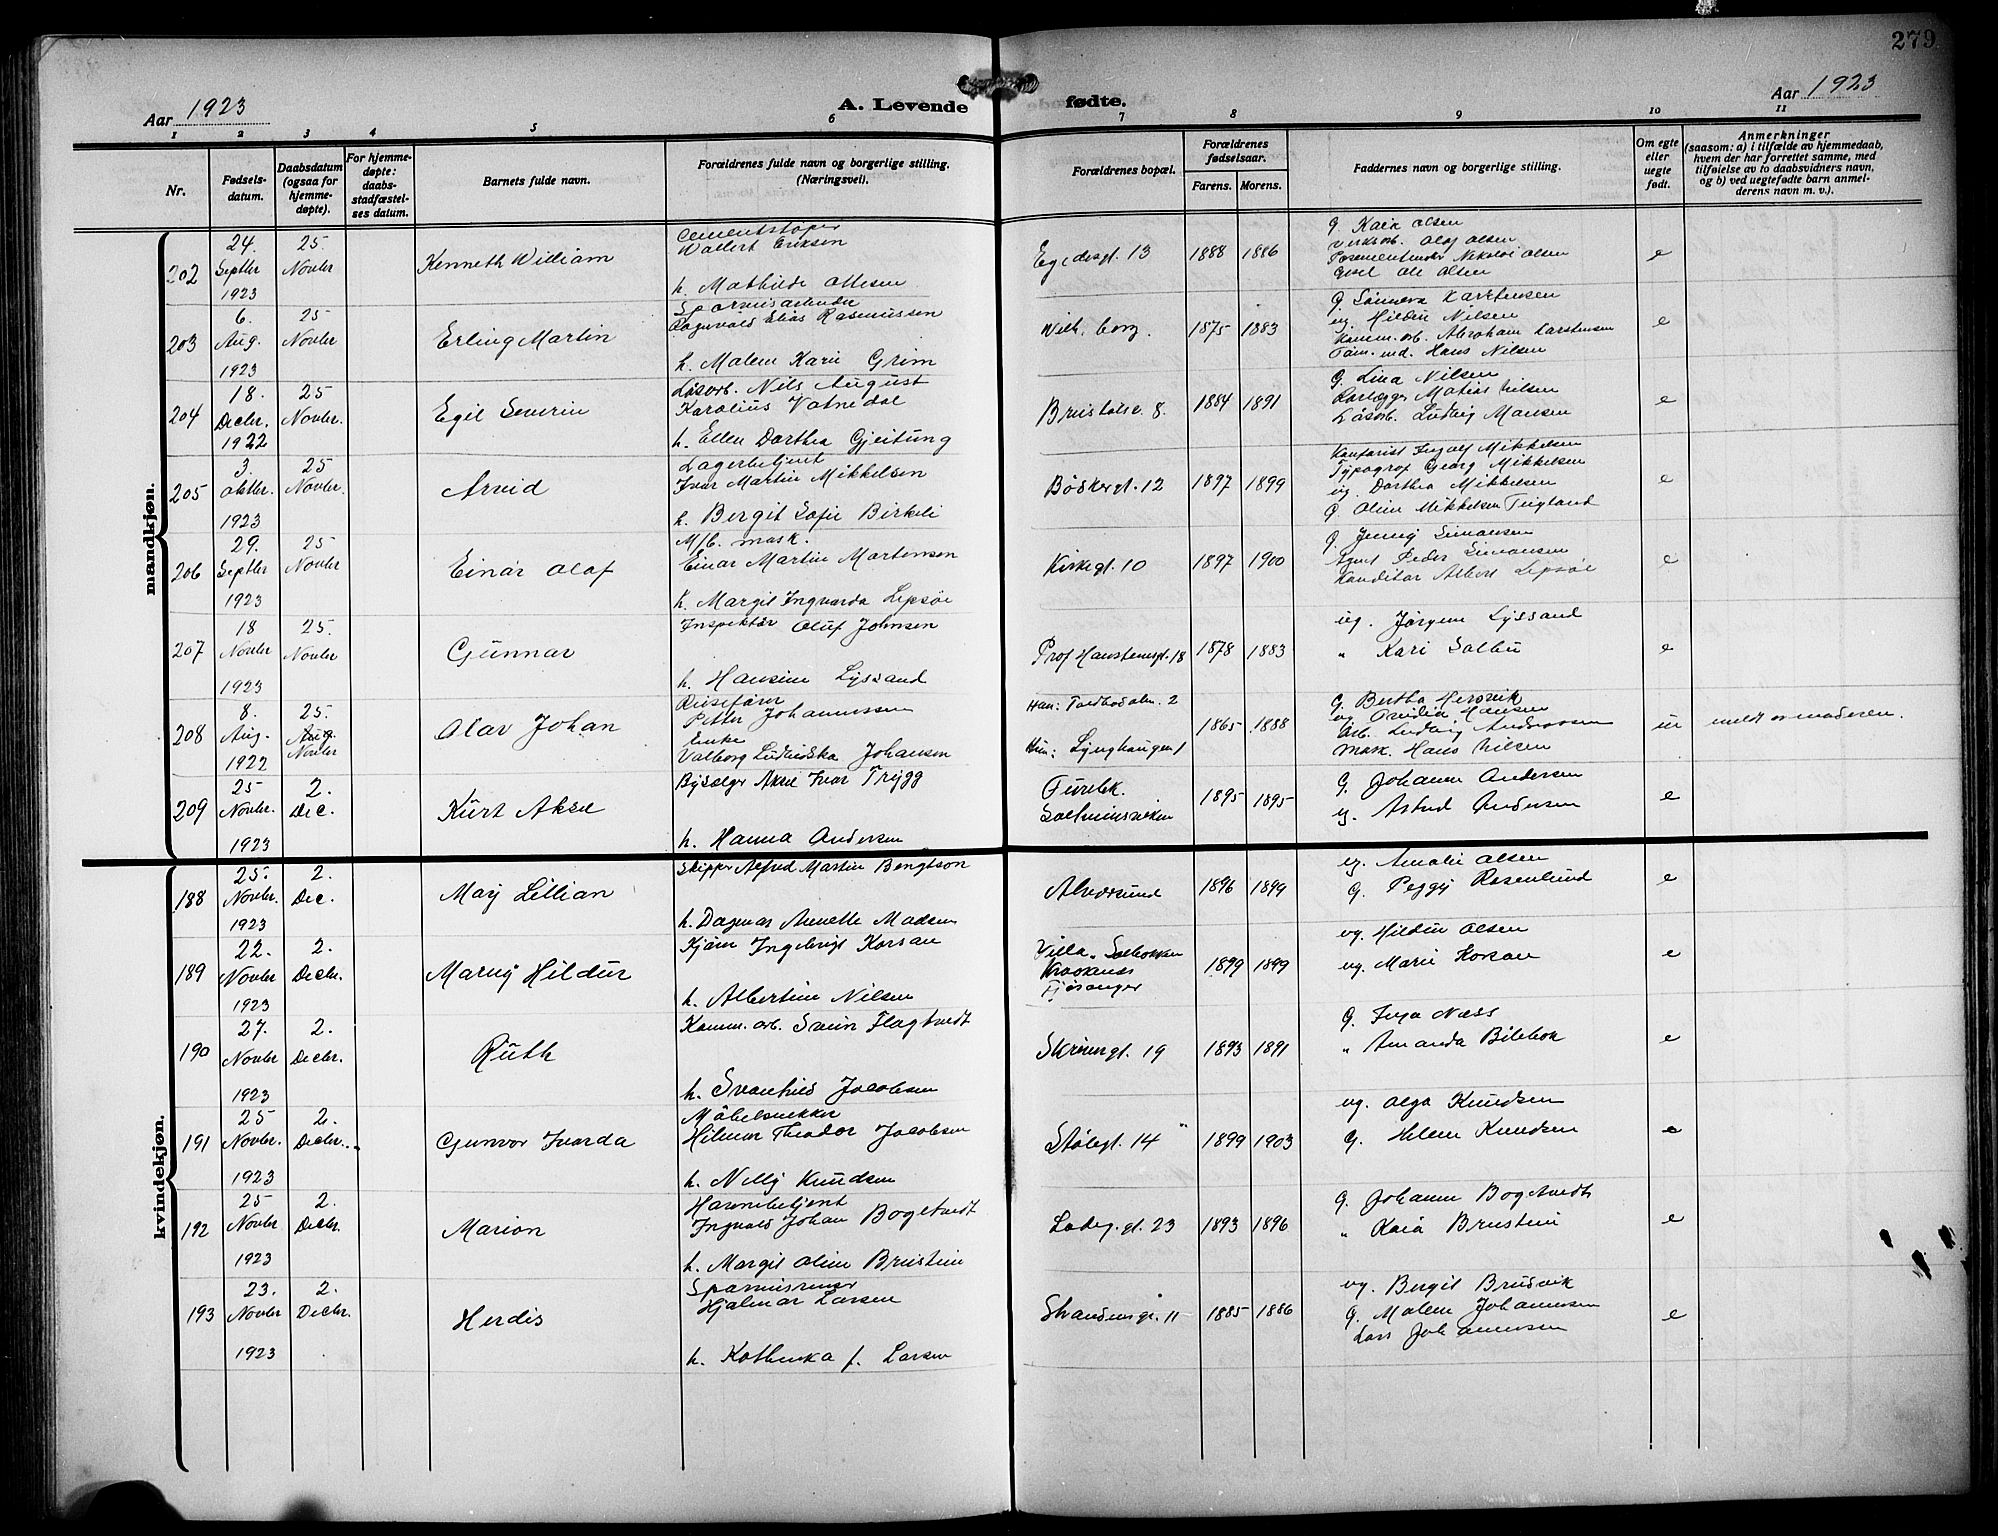 279
Aar 1923
A. Levende fødte.
Aar 1923
1 2 3 4 5 6 7 8 9 10 11
Nr.
Fødsels-
datum.
Daabsdatum
(ogsaa for
hjemme-
døpte).
For hjemme-
døpte:
daabs-
stadfæstel-
ses datum.
Barnets fulde navn.
Forældrenes fulde navn og borgerlige stilling.
(Næringsvei).
Forældrenes bopæl.
Forældrenes
fødselsaar.
Farens. Morens.
Faddernes navn og borgerlige stilling.
Om egte
eller
uegte
født.
Anmerkninger
(saasom: a) i tilfælde av hjemmedaab,
hvem der har forrettet samme, med
tilføielse av to daabsvidners navn,
og b) ved uegtefødte barn anmel-
derens navn m. v.).
mandkjøn.
202
24.
Septbr
1923
25.
Novbr
Kenneth William
Cementstøper
Walfert Eriksen
h. Mathilde Ottesen
Egedesgt. 13
1888 1886
G. Kaia Olsen
Verksarb. Olaf Olsen
Nikolai Olsen
Ole Olsen
e
203
6.
Aug.
1923
25
Novbr
Erling Martin
Ragnvald Elias Rasmussen
h. Malene Karie Grim
Wilh. borg.
1875 1883
G. Karstensen
ug. Hildur Nilsen
Komm. arb. Abraham Karstensen
Tøm. md. Hans Nilsen
e
204
18.
Decbr.
1922
25
Novbr.
Egil Severin
Løsarb. Nils August
Karolius Vatnedal
h. Ellen Dorthea Gjeitung
8.
1884 1891
G. Lina Nilsen
Rørlegger Matias Nilsen
Løsarb. Ludvig Monsen
e
205
3.
Oktbr.
1923
25
Novbr.
Arvid
Lagerbetjent
Ivar Martin Mikkelsen
h. Bergit Sofie Birkeli
Bødkergt. 12
1897 1899
Kontorist Ingolf Mikkelsen
Typograf Georg Mikkelsen
ug. Dorthea Mikkelsen
G. Oline Mikkelsen Tugland
e
206
29.
Septbr
1923
25
Novbr
Einar Olaf
M/b. mask.
Einar Martin Martensen
h. Margit Ingvarda Lepsøe
Kirkegt. 10
1897 1900
G. Jenny Simonsen
Agent Peder Simonsen
Konditor Albert Lepsøe
e
207
18
Novbr
1923
25.
Novbr
Gunnar
Inspektør Oluf Johnsen
h. Hansine Lyssand
Prof Hansteensgt. 18
1878 1883
ug. Jørgine Lyssand
" Kari Solbu
e
208
8.
Aug.
1922
25.
Aug.
Novbr
Olav Johan
Petter Johannessen
Enke
Valborg Ludviska Johansen
Han: Toldbodalm. 2
Hun: Lynghaugen 1
1865 1888
G. Bertha Hersvik
ug. Hansen
Arb. Ludvig Andreassen
Mask. Hans Nilsen
u
meldt av moderen.
209
25
Novbr.
1923
2.
Dec.
Kurt Aksel
Bysælger Aksel Ivar Trygg
h. Hanna Andersen
1895 1895
G. Johanne Andersen
ug. Astrid Andersen
e
kvindekjøn.
188
25.
Novbr.
1923
2.
Dec.
May Lillian
Skipper Alfred Martin Bengtson
h. Dagmar Annette Madsen
Alversund
1896 1899
ug. Amalie Olsen
G. Peggy Rosenlund
e
189
22.
Novbr
1923
2.
Decbr.
Marny Hildur
Kjøm. Ingebrigt Korsan
h. Albertine Nilsen
Villa "Solbakken
Kraakenes
Fjøsanger
1899 1899
ug. Hildur Olsen
ug. Marie Korsan
e
190
27.
Novbr
1923
2.
Decbr.
Ruth
Komm. arb. Svein Flagtvedt
h. Svanhild Jacobsen
Skrivergt. 19
1893 1891
G. Inga Næss
" Amanda
e
191
25
Novbr.
1923
2.
Decbr.
Gunvor Ivarda
Møbelsnekker
Hilmar Theodor Jacobsen
h. Nelly Knudsen
Stølegt. 14
1899 1903
ug. Olga Knudsen
G. Helene Knudsen
e
192
25
Novbr
1923
2.
Decbr.
Marion
Havnebetjent
Ingvald Johan Bogetvedt
h. Margit Oline Brustein
Ladeg. gt. 23
1893 1896
G. Johanne Bogetvedt
" Kaia Brustein
e
193
23.
Novbr
1923
2.
Decbr.
Herdis
Hjalmar Larsen
h. Kathinka f. Larsen
11
1885 1886
ug. Bergit Brudvik
G. Malene Johannesen
Lars Johannessen
e